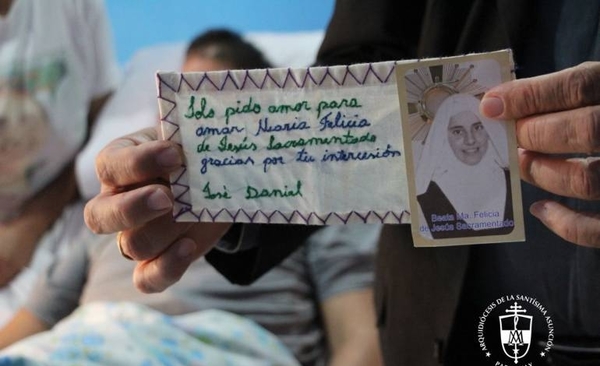 Solo pido amor para
amar Maria Felicia
de Jesús Sacramentado
gracias por tu intercesión
José Daniel
Beata Ma. Felicia
de Jesús Sacramentado
ARQUIDIÓCESIS DE LA SANTÍSIMA ASUNCIÓN